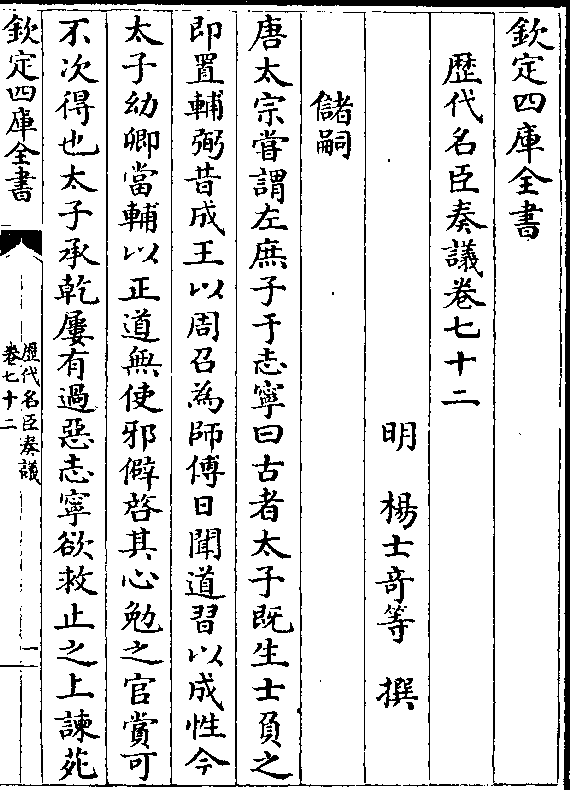 欽定四庫全書
歴代名臣奏議卷七十二
明 楊士竒等 撰
儲嗣
唐太宗嘗謂左庶子于志寧曰古者太子既生士負之
即置輔弼昔成王以周召為師傅日聞道習以成性今
太子幼卿當輔以正道無使邪僻啓其心勉之官賞可
不次得也太子承乾屢有過惡志寧欲救止之上諫苑
欽定四庫全書
歴代名臣奏議
卷七十二
一